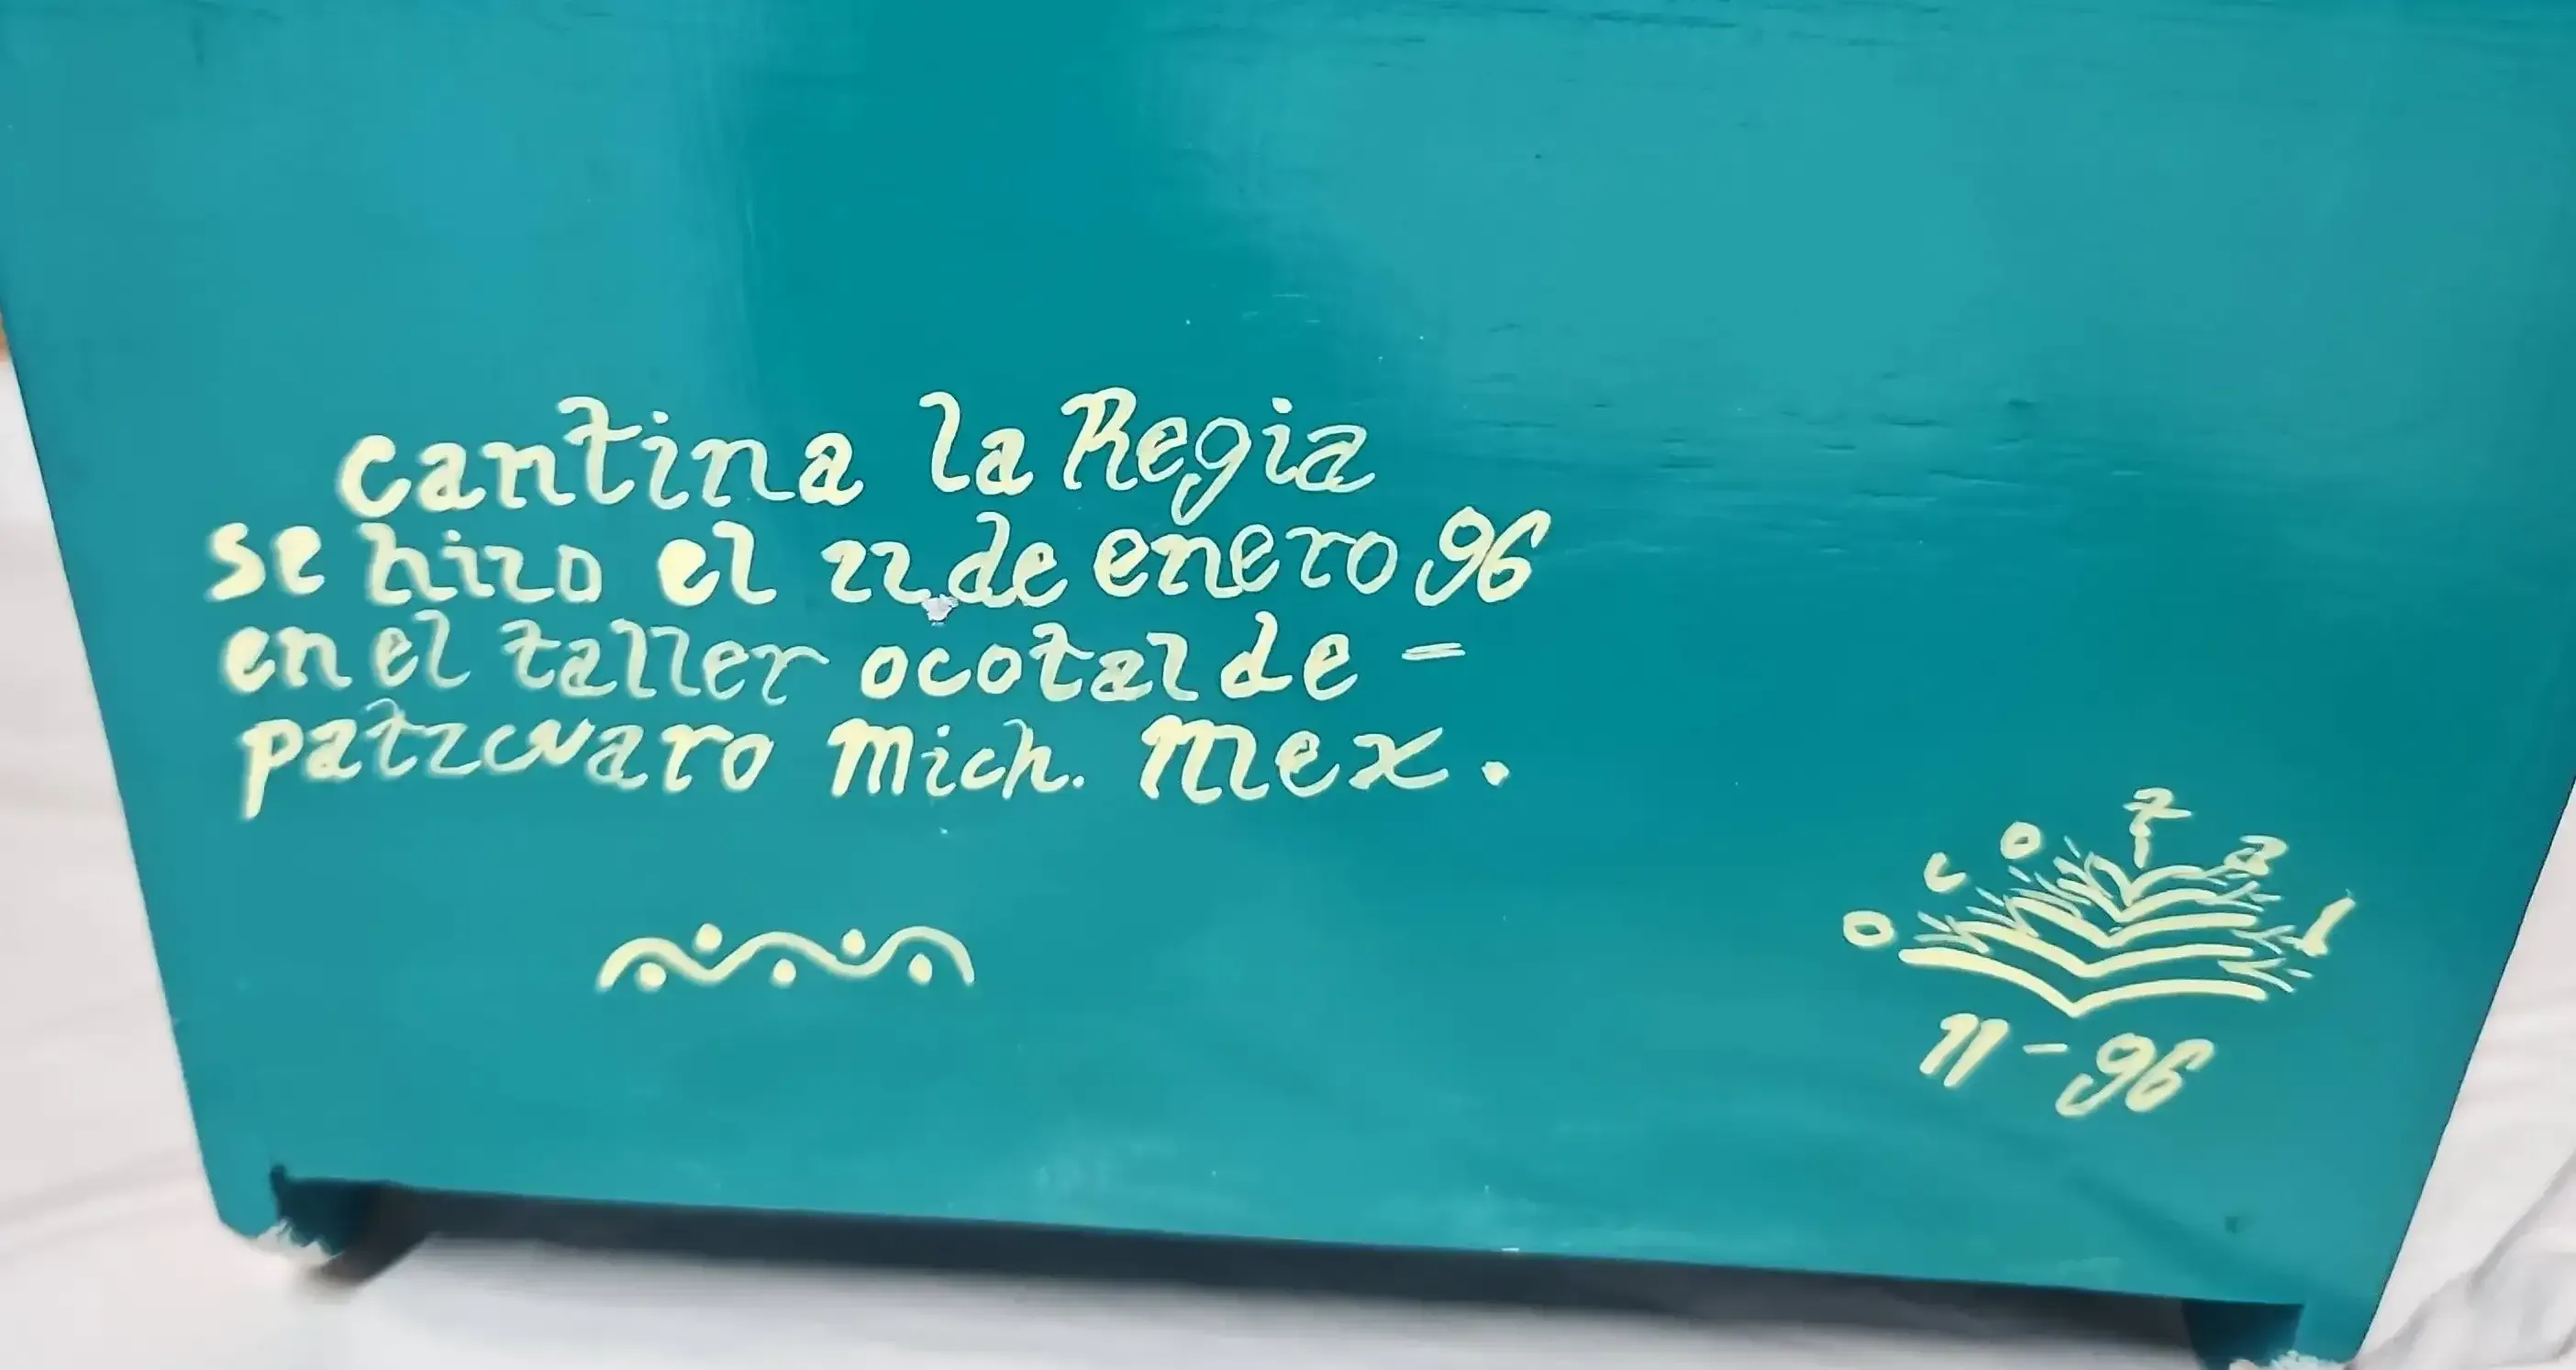 cantina la Regia
se hizo el 22 de enero 96
en el taller ocotal de =
patzcuaro Mich. Mex.
ocotal
11-96